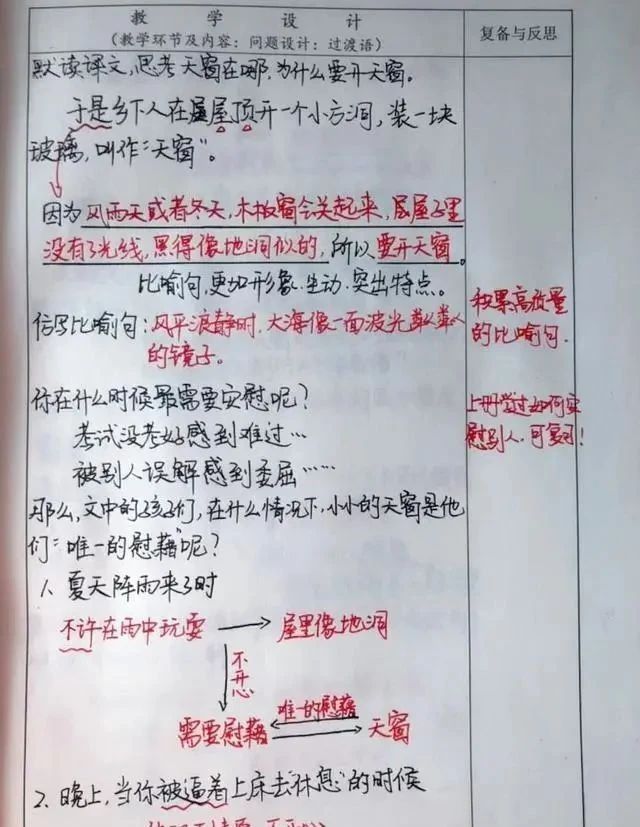 教 学 设 计
(教学环节及内容：问题设计：过渡语)
复备与反思
默读课文,思考天窗在哪,为什么要开天窗。
于是乡下人在屋顶开一个小方洞,装一块
玻璃,叫作:"天窗"。
因为风雨天或者冬天,木板窗会关起来,屋子里
没有了光线,黑得像地洞似的,所以要开天窗。
比喻句,更加形象、生动、突出特点。
仿写比喻句:风平浪静时,大海像一面波光粼粼
的镜子。
积累高质量
的比喻句.
你在什么时候最需要安慰呢?
考试没考好感到难过…
被别人误解感到委屈……
上册学过如何安
慰别人.可复习!
那么,文中的孩子们,在什么情况下,小小的天窗是他
们:"唯一的慰藉"呢?
1、夏天阵雨来了时
不许在雨中玩耍 → 屋里像地洞
不开心
需要慰藉 唯一的慰藉 天窗
2、晚上,当你被逼着上床去"休息"的时候